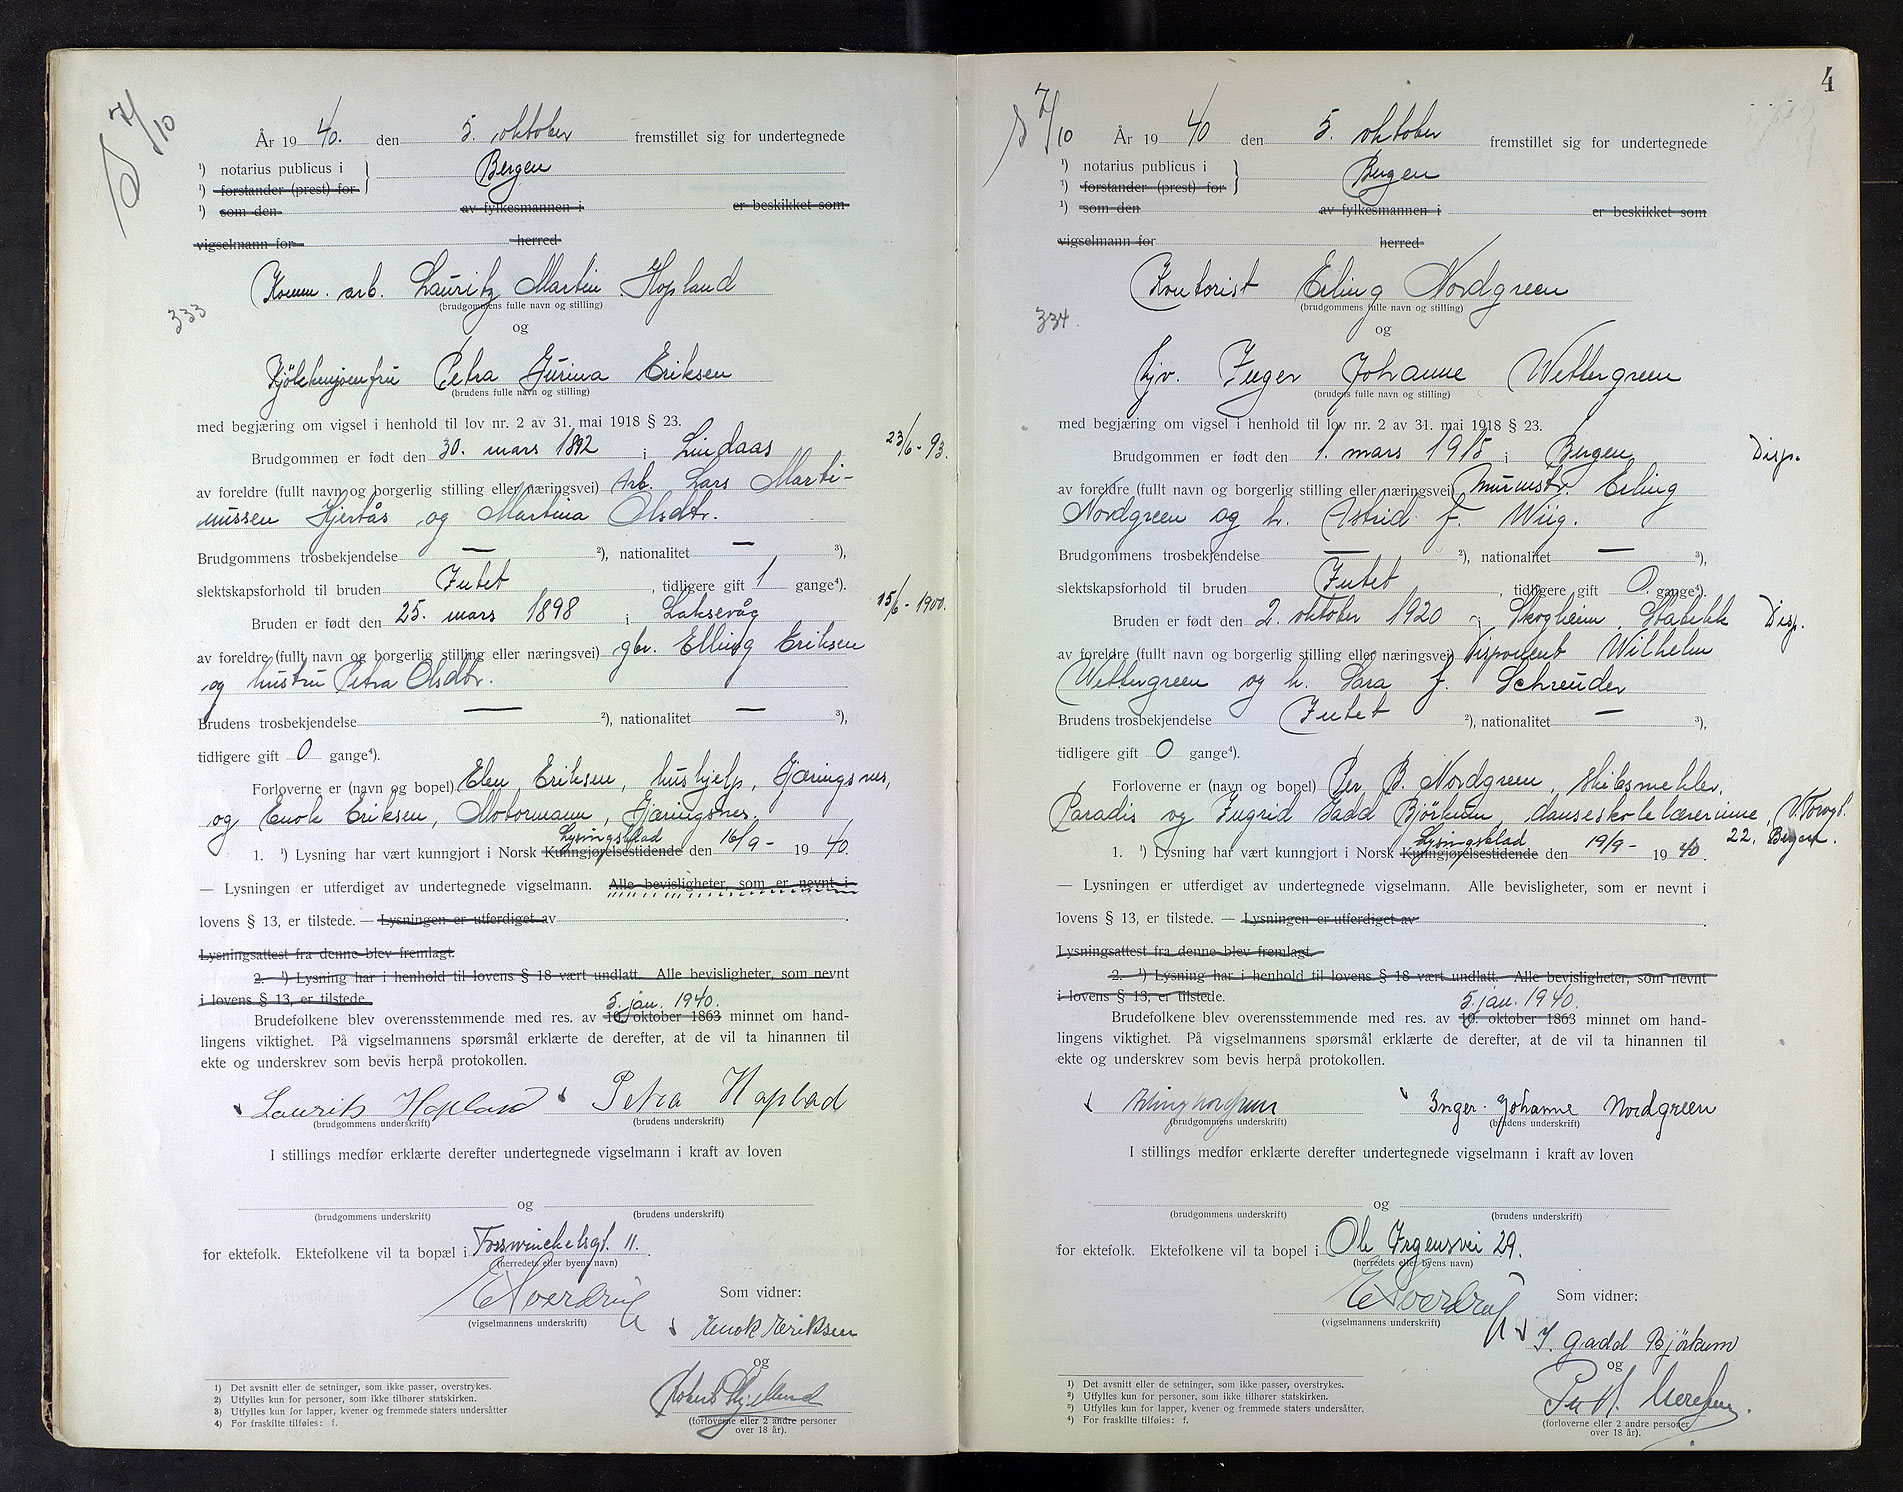 7/10
År 19 40. den 5. oktober fremstillet sig for undertegnede
¹) notarius publicus i } Bergen
¹) forstander (prest) for
¹) som den av fylkesmannen i er beskikket som
vigselmann for herred
Komm. arb. Lauritz Martin Hopland
(brudgommens fulle navn og stilling)
333
og
Kjøkkenjomfru Petra Jurina Eriksen
(brudens fulle navn og stilling)
med begjæring om vigsel i henhold til lov nr. 2 av 31. mai 1918 § 23.
Brudgommen er født den 30. mars 1892 i Lindaas 23/6 - 93.
av foreldre (fullt navn og borgerlig stilling eller næringsvei) Arb. Lars Marti-
nussen Hjertås og Martina Olsdtr.
Brudgommens trosbekjendelse — ²), nationalitet — ³),
slektskapsforhold til bruden Intet, tidligere gift 1 gange⁴).
Bruden er født den 25. mars 1898 i Laksevåg 15/6 - 1900.
av foreldre (fullt navn og borgerlig stilling eller næringsvei) gbr. Elling Eriksen
og hustru Petra Olsdtr.
Brudens trosbekjendelse — ²), nationalitet — ³),
tidligere gift 0 gange⁴).
Forloverne er (navn og bopel) Elen Eriksen, hushjelp, Hjæringsnes,
og Enok Eriksen, Motormann, Hjæringsnes.
Lysingsblad
1. ¹) Lysning har vært kunngjort i Norsk Kunngjørelsestidende den 16/9 - 19 40.
— Lysningen er utferdiget av undertegnede vigselmann. Alle bevisligheter, som er nevnt i
lovens § 13, er tilstede. — Lysningen er utferdiget av .
Lysningsattest fra denne blev fremlagt.
2. ¹) Lysning har i henhold til lovens § 18 vært undlatt. Alle bevisligheter, som nevnt
i lovens § 13, er tilstede.
5. jan. 1940.
Brudefolkene blev overensstemmende med res. av 10. oktober 1863 minnet om hand-
lingens viktighet. På vigselmannens spørsmål erklærte de derefter, at de vil ta hinannen til
ekte og underskrev som bevis herpå protokollen.
Laurits Hopland Petra Hopland
(brudgommens underskrift) (brudens underskrift)
I stillings medfør erklærte derefter undertegnede vigselmann i kraft av loven
og
(brudgommens underskrift) (brudens underskrift)
for ektefolk. Ektefolkene vil ta bopæl i Fosswinckelsgt. 11.
(herredets eller byens navn)
Som vidner:
(vigselmannens underskrift)
Enok Eriksen
og
(forloverne eller 2 andre personer
over 18 år).
1) Det avsnitt eller de setninger, som ikke passer, overstrykes.
2) Utfylles kun for personer, som ikke tilhører statskirken.
3) Utfylles kun for lapper, kvener og fremmede staters undersåtter
4) For fraskilte tilføies: f.
4
7/10
År 19 40 den 5. oktober fremstillet sig for undertegnede
¹) notarius publicus i } Bergen
¹) forstander (prest) for
¹) som den av fylkesmannen i er beskikket som
vigselmann for herred
Kontorist Erling Nordgreen
(brudgommens fulle navn og stilling)
334.
og
Hjv. Inger Johanne Wettergreen
(brudens fulle navn og stilling)
med begjæring om vigsel i henhold til lov nr. 2 av 31. mai 1918 § 23.
Brudgommen er født den 1. mars 1915 i Bergen Disp.
av foreldre (fullt navn og borgerlig stilling eller næringsvei) Murmstr. Erling
Nordgreen og h. Astrid f. Wiig.
Brudgommens trosbekjendelse — ²), nationalitet — ³),
slektskapsforhold til bruden Intet, tidligere gift 0. gange⁴).
Bruden er født den 2. oktober 1920 i Skogheim, Stabekk Disp.
av foreldre (fullt navn og borgerlig stilling eller næringsvei) Disponent Wilhelm
Wettergreen og h. Sara f. Schreuder
Brudens trosbekjendelse Intet ²), nationalitet — ³),
tidligere gift 0 gange⁴).
Forloverne er (navn og bopel) Per B. Nordgreen, skibsmekler,
Paradis og Ingrid Gadd Bjørkum, danseskolelærerinne, V. Torvgt.
22, Bergen.
Lysingsblad
1. ¹) Lysning har vært kunngjort i Norsk Kunngjørelsestidende den 19/9 - 19 40.
— Lysningen er utferdiget av undertegnede vigselmann. Alle bevisligheter, som er nevnt i
lovens § 13, er tilstede. — Lysningen er utferdiget av .
Lysningsattest fra denne blev fremlagt.
2. ¹) Lysning har i henhold til lovens § 18 vært undlatt. Alle bevisligheter, som nevnt
i lovens § 13, er tilstede.
5. jan. 1940.
Brudefolkene blev overensstemmende med res. av 10. oktober 1863 minnet om hand-
lingens viktighet. På vigselmannens spørsmål erklærte de derefter, at de vil ta hinannen til
ekte og underskrev som bevis herpå protokollen.
Erling Nordgreen Inger Johanne Nordgreen
(brudgommens underskrift) (brudens underskrift)
I stillings medfør erklærte derefter undertegnede vigselmann i kraft av loven
og
(brudgommens underskrift) (brudens underskrift)
for ektefolk. Ektefolkene vil ta bopel i Ole Irgensvei 29.
(herredets eller byens navn)
Som vidner:
(vigselmannens underskrift)
I. Gadd Bjørkum
og
(forloverne eller 2 andre personer
over 18 år).
1) Det avsnitt eller de setninger, som ikke passer, overstrykes.
2) Utfylles kun for personer, som ikke tilhører statskirken.
3) Utfylles kun for lapper, kvener og fremmede staters undersåtter.
4) For fraskilte tilføies: f.